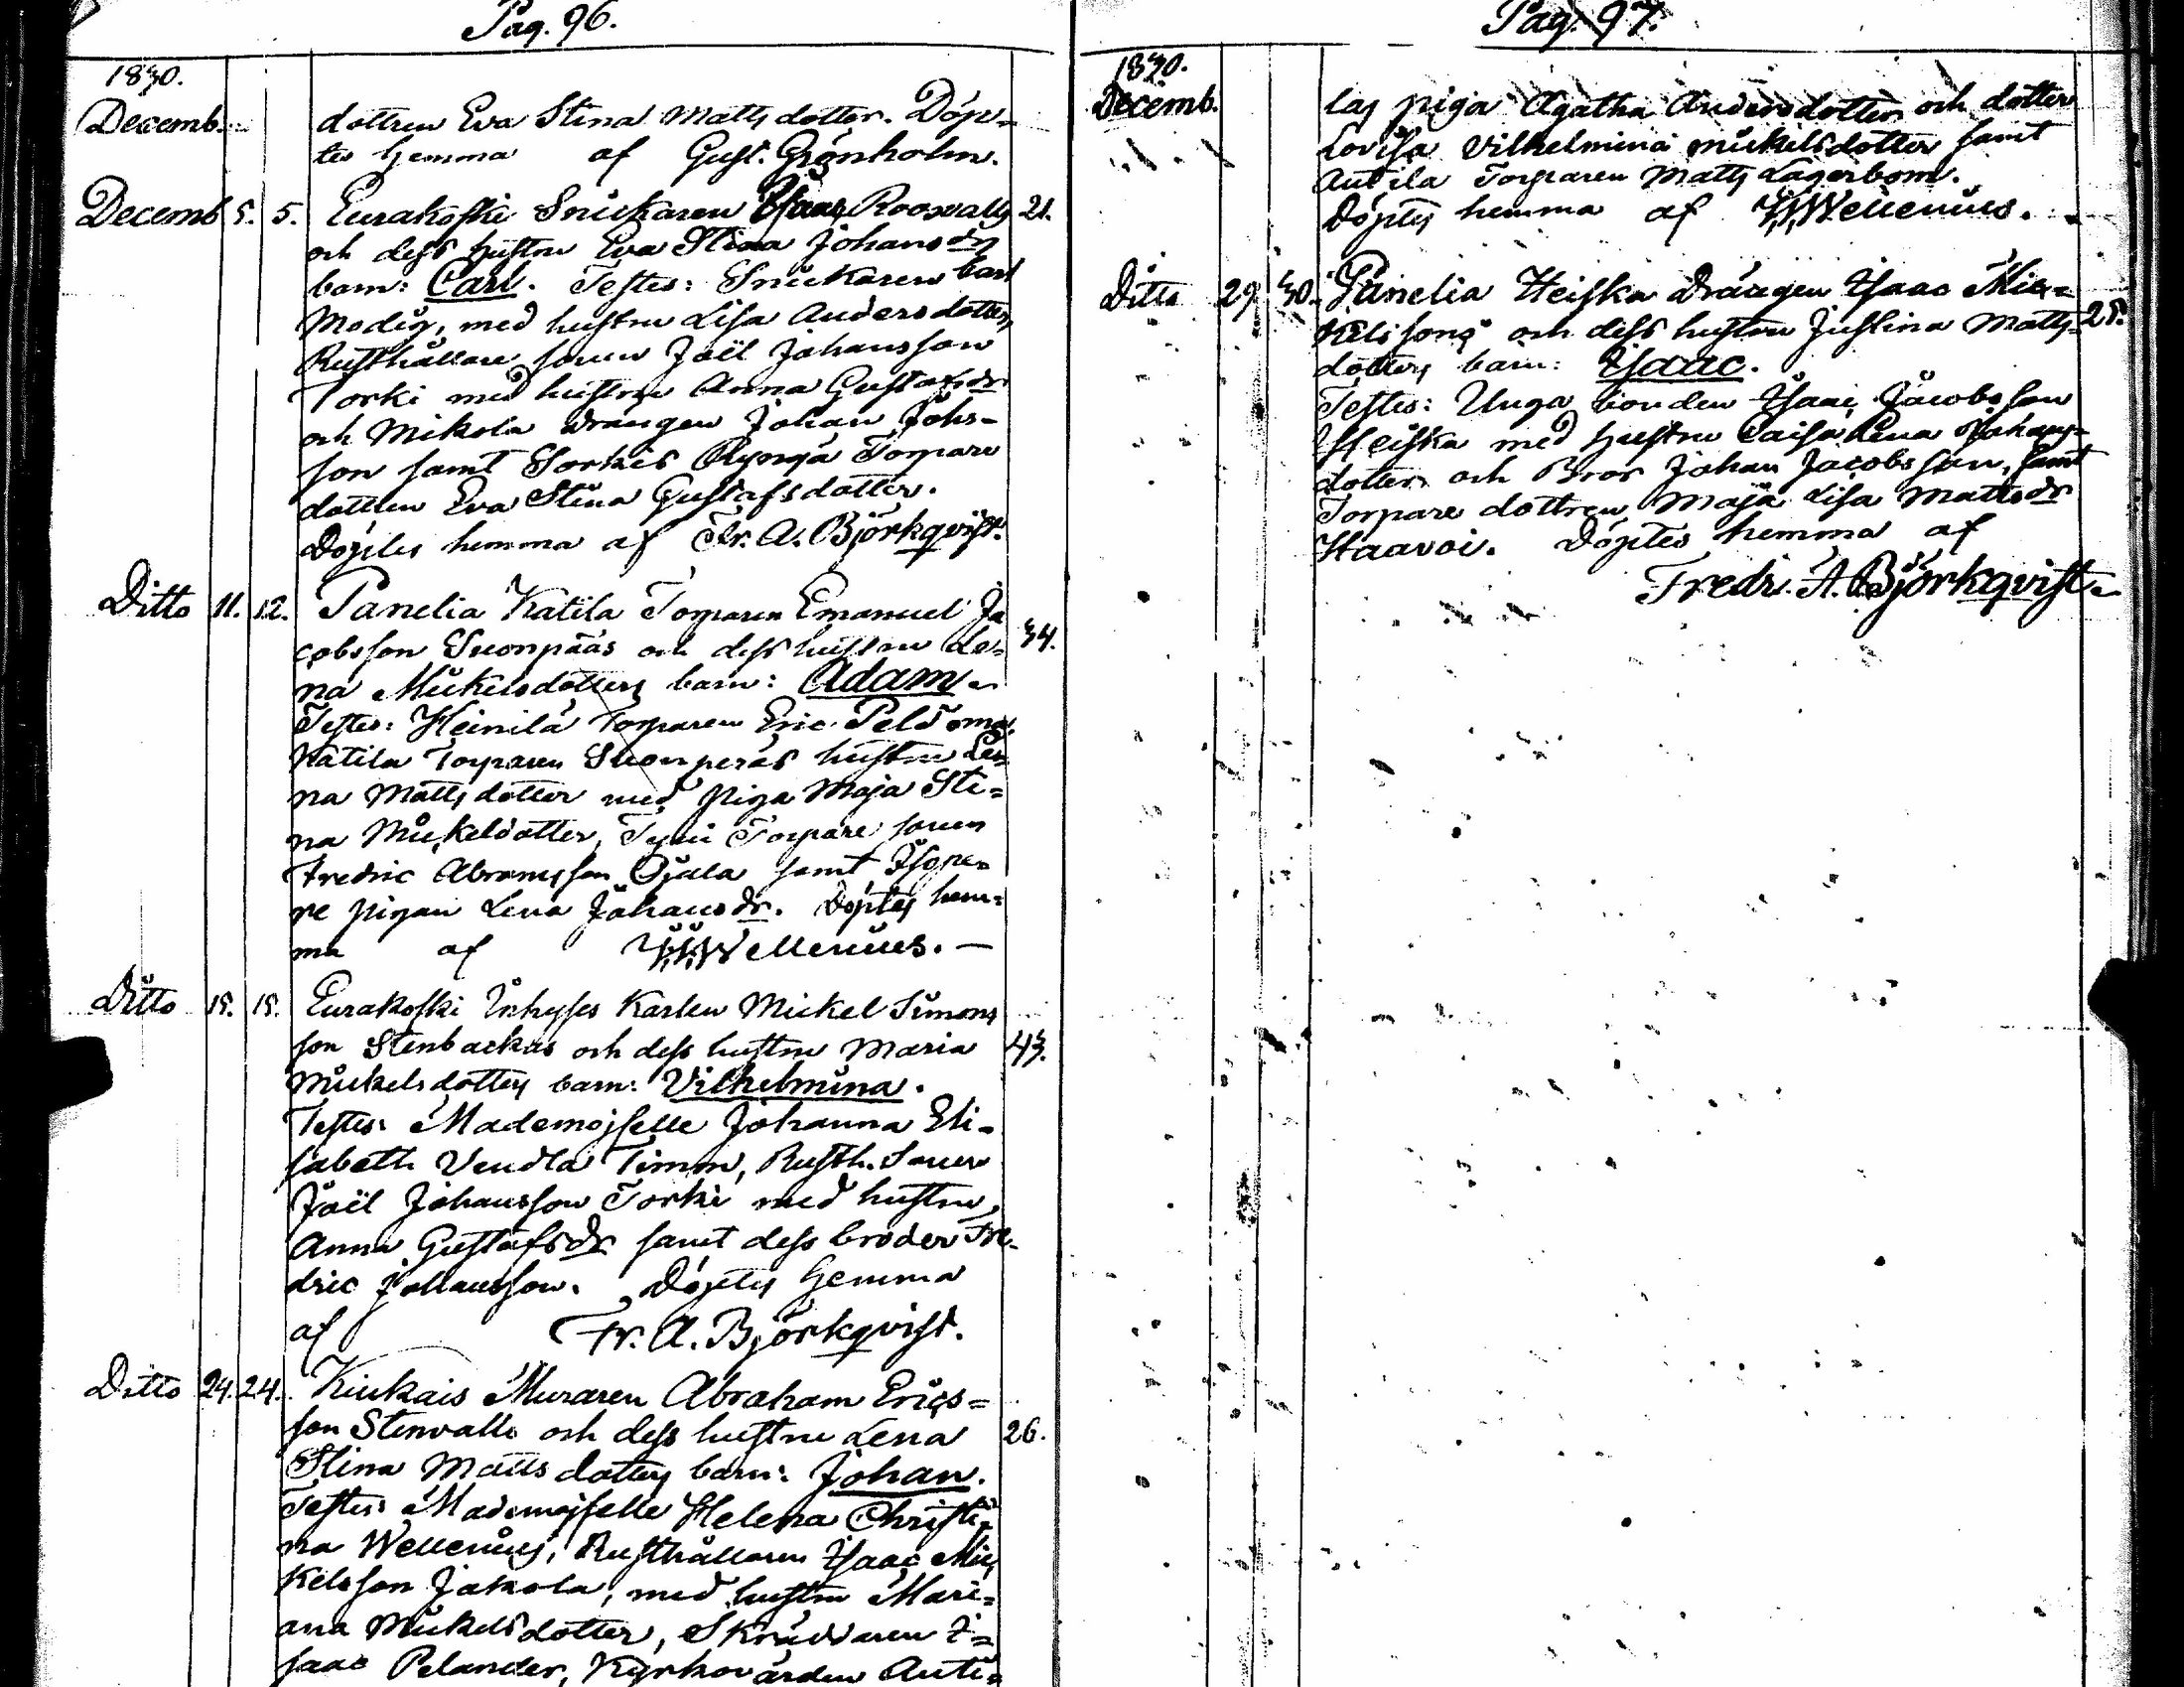 Pag. 96.
1830.
Decemb. dottren Eva Stina Matts dotter. Döp=
tes hemma af Gust. Grönholm.
Decemb 5. 5. Eurakoski Snickaren Isaac Roosvalls 21.
och dess hustru Eva Stina Johansdrs
barn: Carl. Testes: Snickaren Carl
Modig, med hustru Lisa Andersdotter,
Rusthållare sonen Joël Johansson
Torki med hustru Anna Gustafsdr
och Mikola drängen Johan Johs=
son samt Torkis Torpare
dottren Eva Stina Gustafsdotter.
Döptes hemma af Fr. A. Björkqvist.
Ditto 11. 12. Panelia Katila Torparen Emanuel Ja
cobsson Suonpääs och dess hustru Le= 34.
na Mickelsdotters barn: Adam.
Testes: Heinilä Torparen Eric Peldoma,
Katila Torparen Suonperäs hustru Le=
na Matts dotter med piga Maja Sti=
na Mickelsdotter, Torpare sonen
Fredric Abramsson Ojala samt
re pigan Lena Johansdr. Döptes hem=
ma af Wellenius. —
Ditto 15. 15. Eurakoski Inhyses Karlen Mickel Simons
son Stenbackas och dess hustru Maria 43.
Mickelsdotters barn: Vilhelmina.
Testes: Mademojselle Johanna Eli=
sabeth Vendla Timm, Rusth. Sonen
Joël Johansson Torki med hustru,
Anna Gustafsdr samt dess broder Fre=
dric Johansson. Döptes hemma
af Fr. A. Björkqvist.
Ditto 24. 24. Kiukais Muraren Abraham Erics=
son Stenvalls och dess hustru Lena 26.
Stina Matts dotters barn: Johan.
Testes: Mademojselle Helena Christi=
na Wellenius, Rusthållaren Isaac Mic
kelsson Jakola, med hustru Mari=
ana Mickelsdotter, Skräddaren I=
saac Pelander, Kyrkovärden Anti=
Pag. 97.
1830.
Decemb. las piga Agatha Andersdotter och dotter
Lovisa Vilhelmina Mickelsdotter samt
Antila Torparen Matts Lagerbom.
Döptes hemma af Wellenius.
Ditto 29 30. Panelia Heiska Drängen Isaac Mic=
kelssons och dess hustru Justina Matts= 28.
dotters barn: Isaac.
Testes: Unga bonden Isaac Jacobsson
Heiska med hustru Caisa Lena Johans=
dotter och Bror Johan Jacobsson, samt
Torpare dottren Maja Lisa Mattsdr
Haavoi. Döptes hemma af
Fredr. A. Björkqvist